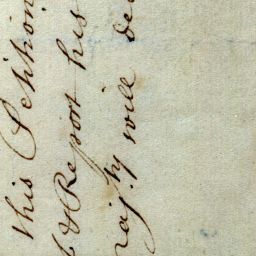 this Petition
& Report his
maj:ty will de